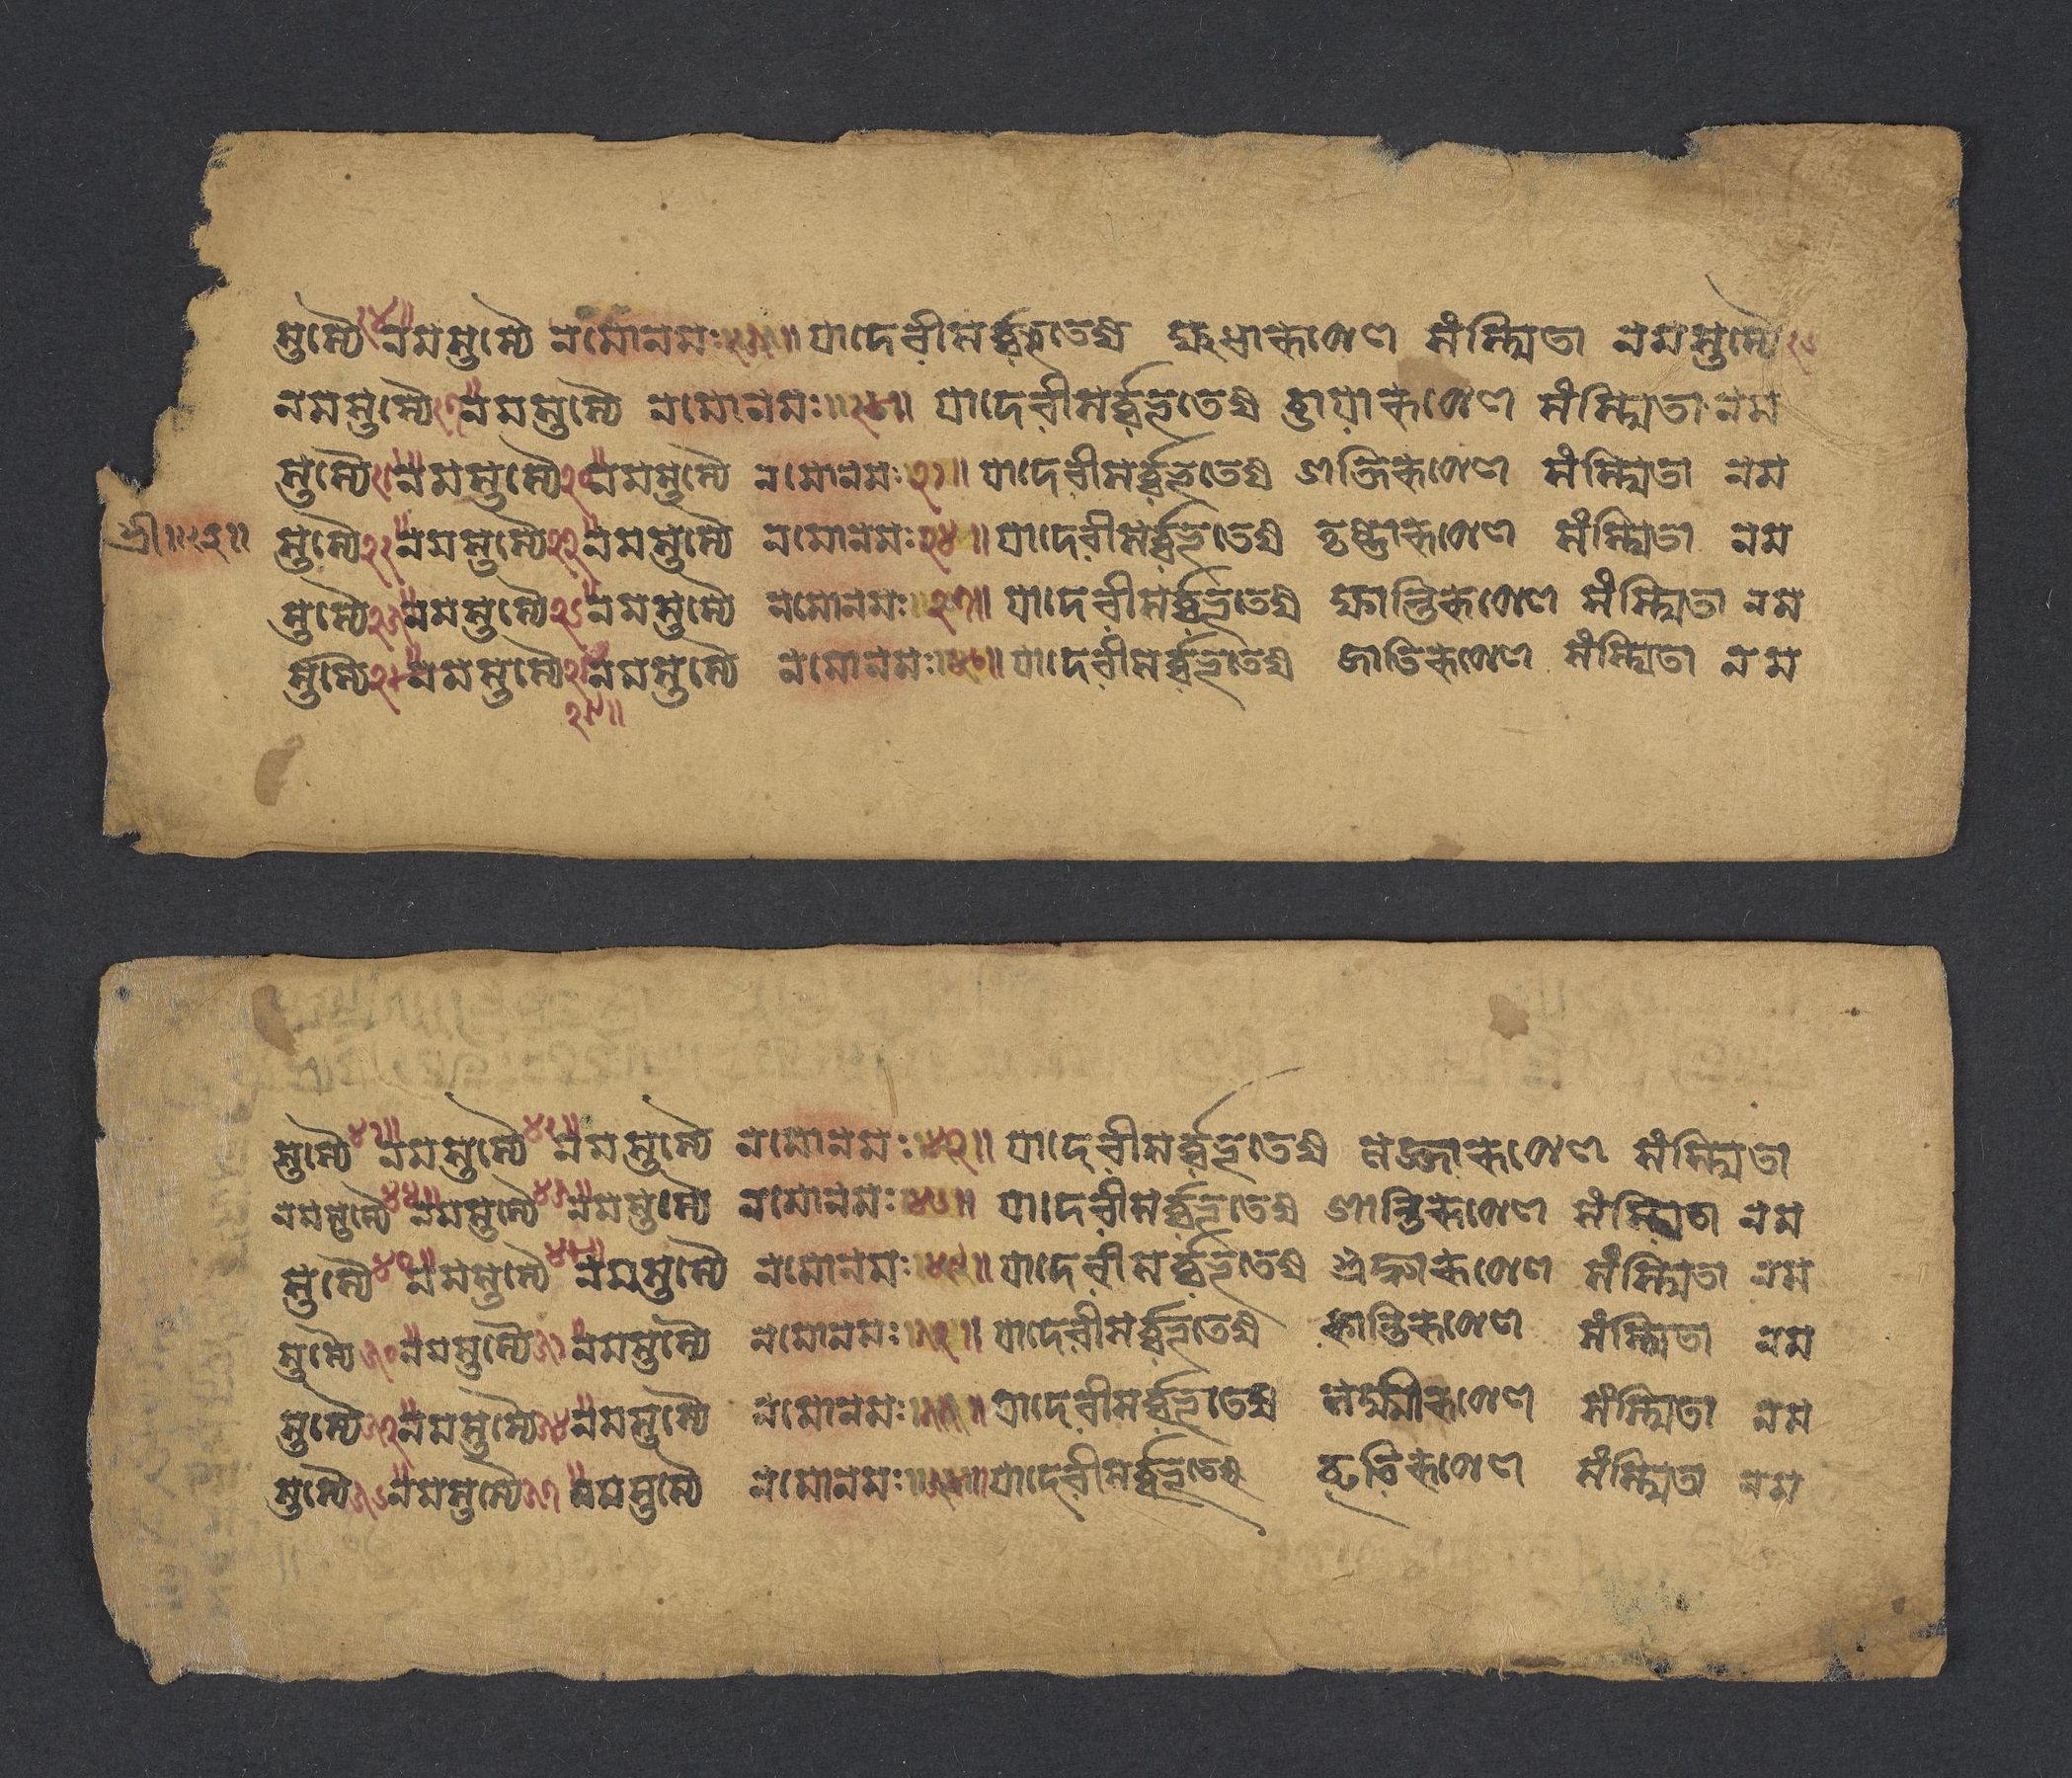 स्तस्यै नमस्तस्यै नमोनमः ॥ यादेवीसर्व्वभूतेषु क्षुधारूपेण संस्थिता नमस्तस्यै
नमस्तस्यै नमस्तस्यै नमोनमः ॥ यादेवीसर्व्वभूतेषु छायारूपेण संस्थिता नम
स्तस्यै नमस्तस्यै नमस्तस्यै नमोनमः ॥ यादेवीसर्व्वभूतेषु शक्तिरूपेण संस्थिता नम
श्री ॥
स्तस्यै नमस्तस्यै नमस्तस्यै नमोनमः ॥ यादेवीसर्व्वभूतेषु तृष्णारूपेण संस्थिता नम
स्तस्यै नमस्तस्यै नमस्तस्यै नमोनमः ॥ यादेवीसर्व्वभूतेषु क्षान्तिरूपेण संस्थिता नम
स्तस्यै नमस्तस्यै नमस्तस्यै नमोनमः ॥ यादेवीसर्व्वभूतेषु जातिरूपेण संस्थिता नम
स्तस्यै नमस्तस्यै नमस्तस्यै नमोनमः ॥ यादेवीसर्व्वभूतेषु लज्जारूपेण संस्थिता
नमस्तस्यै नमस्तस्यै नमस्तस्यै नमोनमः ॥ यादेवीसर्व्वभूतेषु शान्तिरूपेण संस्थिता नम
स्तस्यै नमस्तस्यै नमस्तस्यै नमोनमः ॥ यादेवीसर्व्वभूतेषु श्रद्धारूपेण संस्थिता नम
स्तस्यै नमस्तस्यै नमस्तस्यै नमोनमः ॥ यादेवीसर्व्वभूतेषु कान्तिरूपेण संस्थिता नम
स्तस्यै नमस्तस्यै नमस्तस्यै नमोनमः ॥ यादेवीसर्व्वभूतेषु लक्ष्मीरूपेण संस्थिता नम
स्तस्यै नमस्तस्यै नमस्तस्यै नमोनमः ॥ यादेवीसर्व्वभूतेषु धृतिरूपेण संस्थिता नम